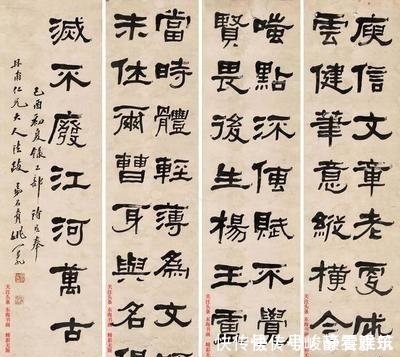 庾信文章老更成
雲健筆意縱橫今
嗤點流傳賦不覺
賢畏後生楊王盧
當時體輕薄為文
未休爾曹身與名
滅不廢江河萬古
己酉初夏録工部詩句奉
仁兄大人法政